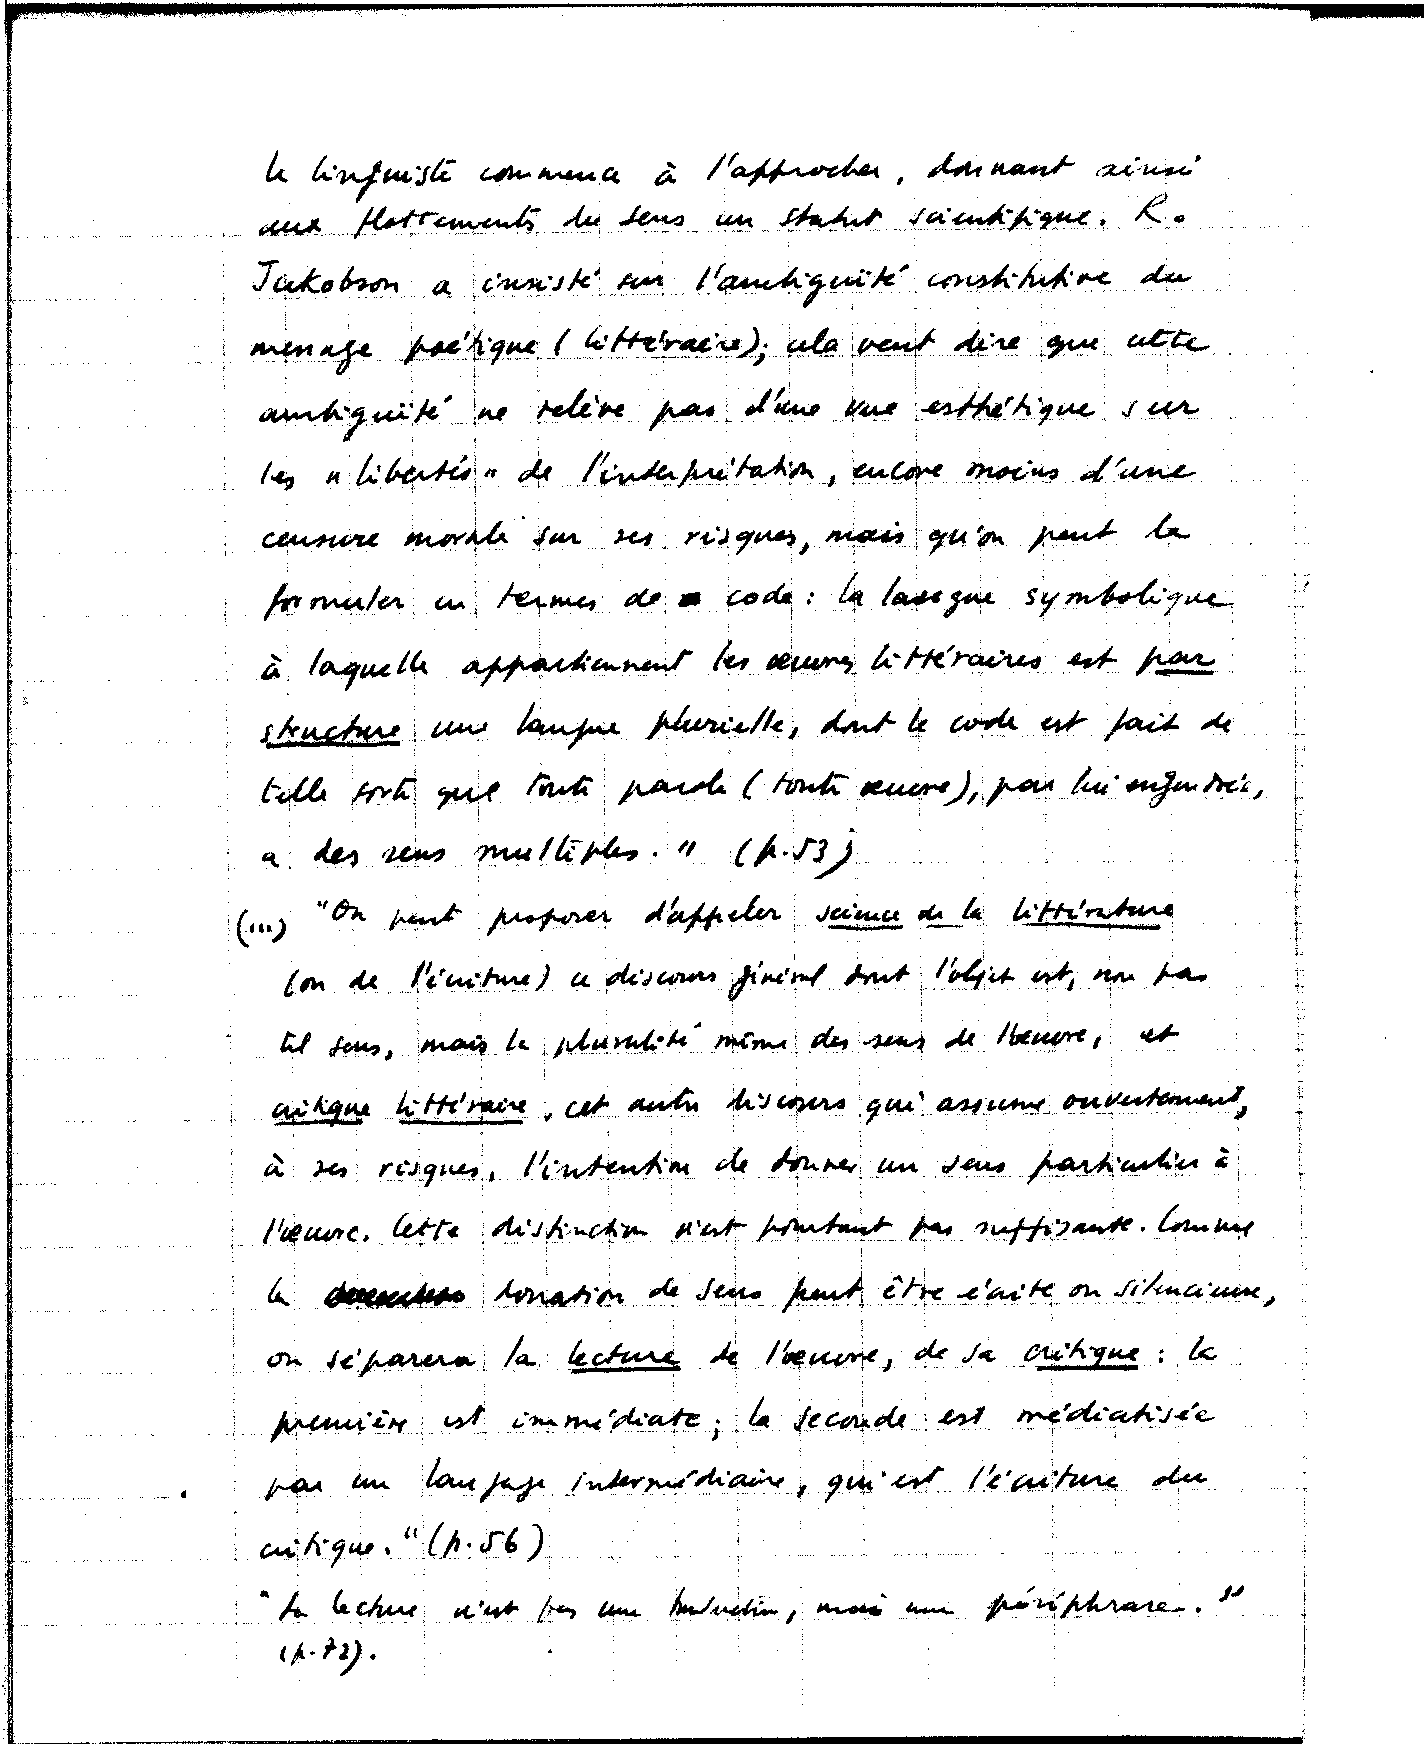 le linguiste commence à l'approcher, donnant ainsi
aux flottements du sens un statut scientifique. R.
Jakobson a insisté sur l'ambiguité constitutive du
message poétique (littéraire); cela veut dire que cette
ambiguité ne relève pas d'une vue esthétique sur
les "libertés" de l'interprétation, encore moins d'une
censure morale sur ses risques, mais qu'on peut la
formuler en termes de code : la langue symbolique
à laquelle appartiennent les œuvres littéraires est par
structure une langue plurielle, dont le code est fait de
telle sorte que toute parole (toute œuvre), par lui engendrée,
a des sens multiples. " (p.53)
(...) "On peut proposer d'appeler science de la littérature
(ou de l'écriture) ce discours général dont l'objet est, non pas
tel sens, mais la pluralité même des sens de l'œuvre, et
critique littéraire, cet autre discours qui assume ouvertement,
à ses risques, l'intention de donner un sens particulier à
l'œuvre. Cette distinction n'est pourtant pas suffisante. Comme
la donation de sens peut être écrite ou silencieuse,
on séparera la lecture de l'œuvre, de sa critique : la
première est immédiate; la seconde est médiatisée
par un langage intermédiaire, qui est l'écriture du
critique." (p.56)
"La lecture n'est pas une traduction, mais une périphrase."
(p.72).